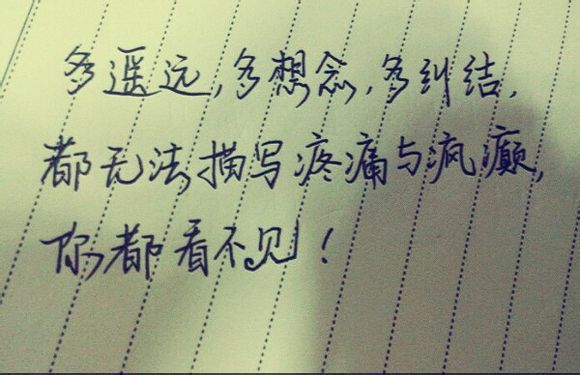 多遥远,多想念,多纠结,
都无法描写疼痛与疯癫,
你都看不见!